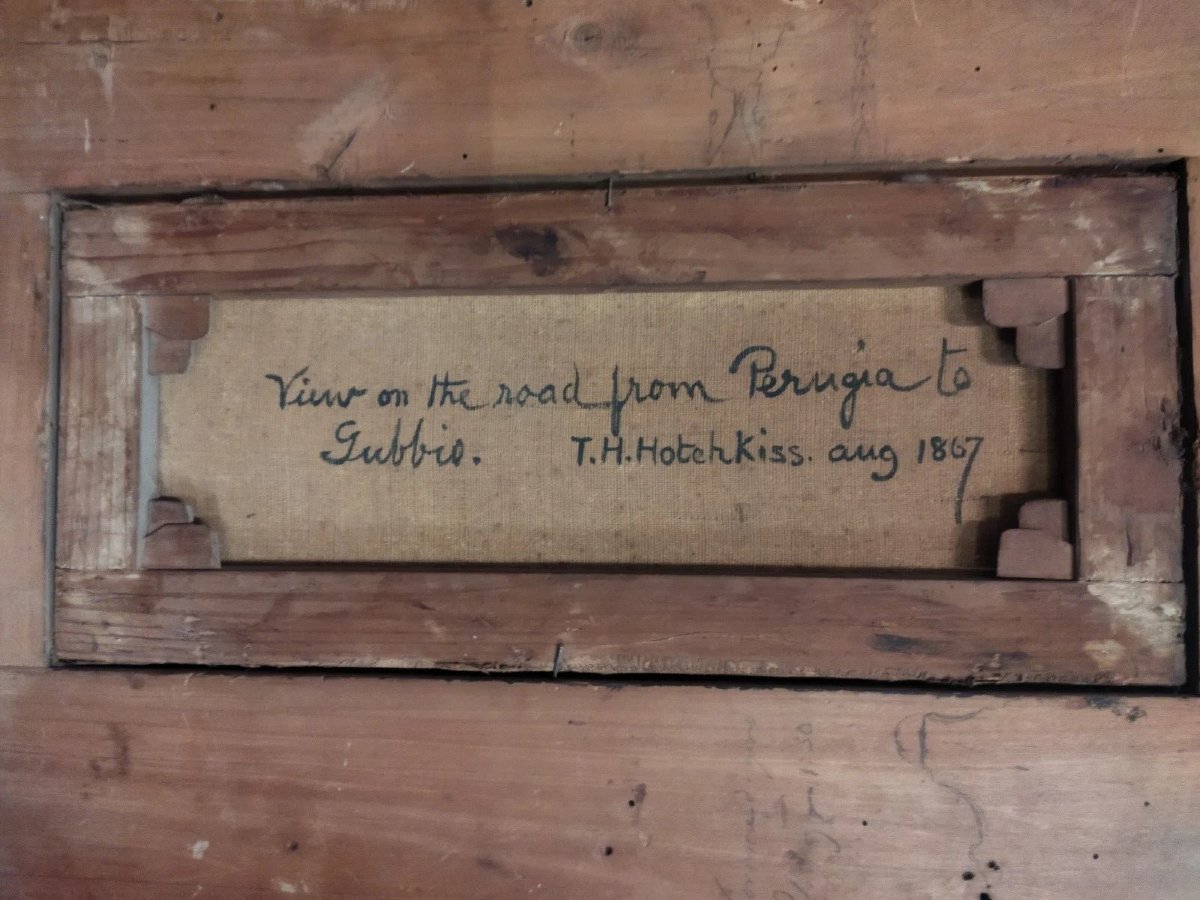 View on the road from Perugia to
Gubbio. T.H. Hotchkiss. aug 1867